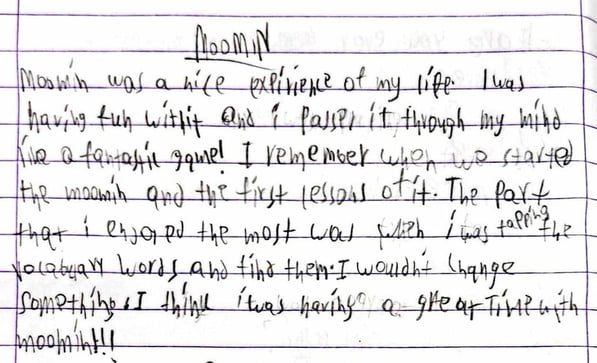 MOOMIN
Moomin was a nice expirience of my life. I was
having fun withit and i passer it, through my mind
like a fantastic game! I remember when we started
the moomin and the first lessons of it. The part
that i enjoyed the most was when i was tapping the
vocabulary words and find them. I wouldn't change
something. I think i was having a great Time with
moomin!!!